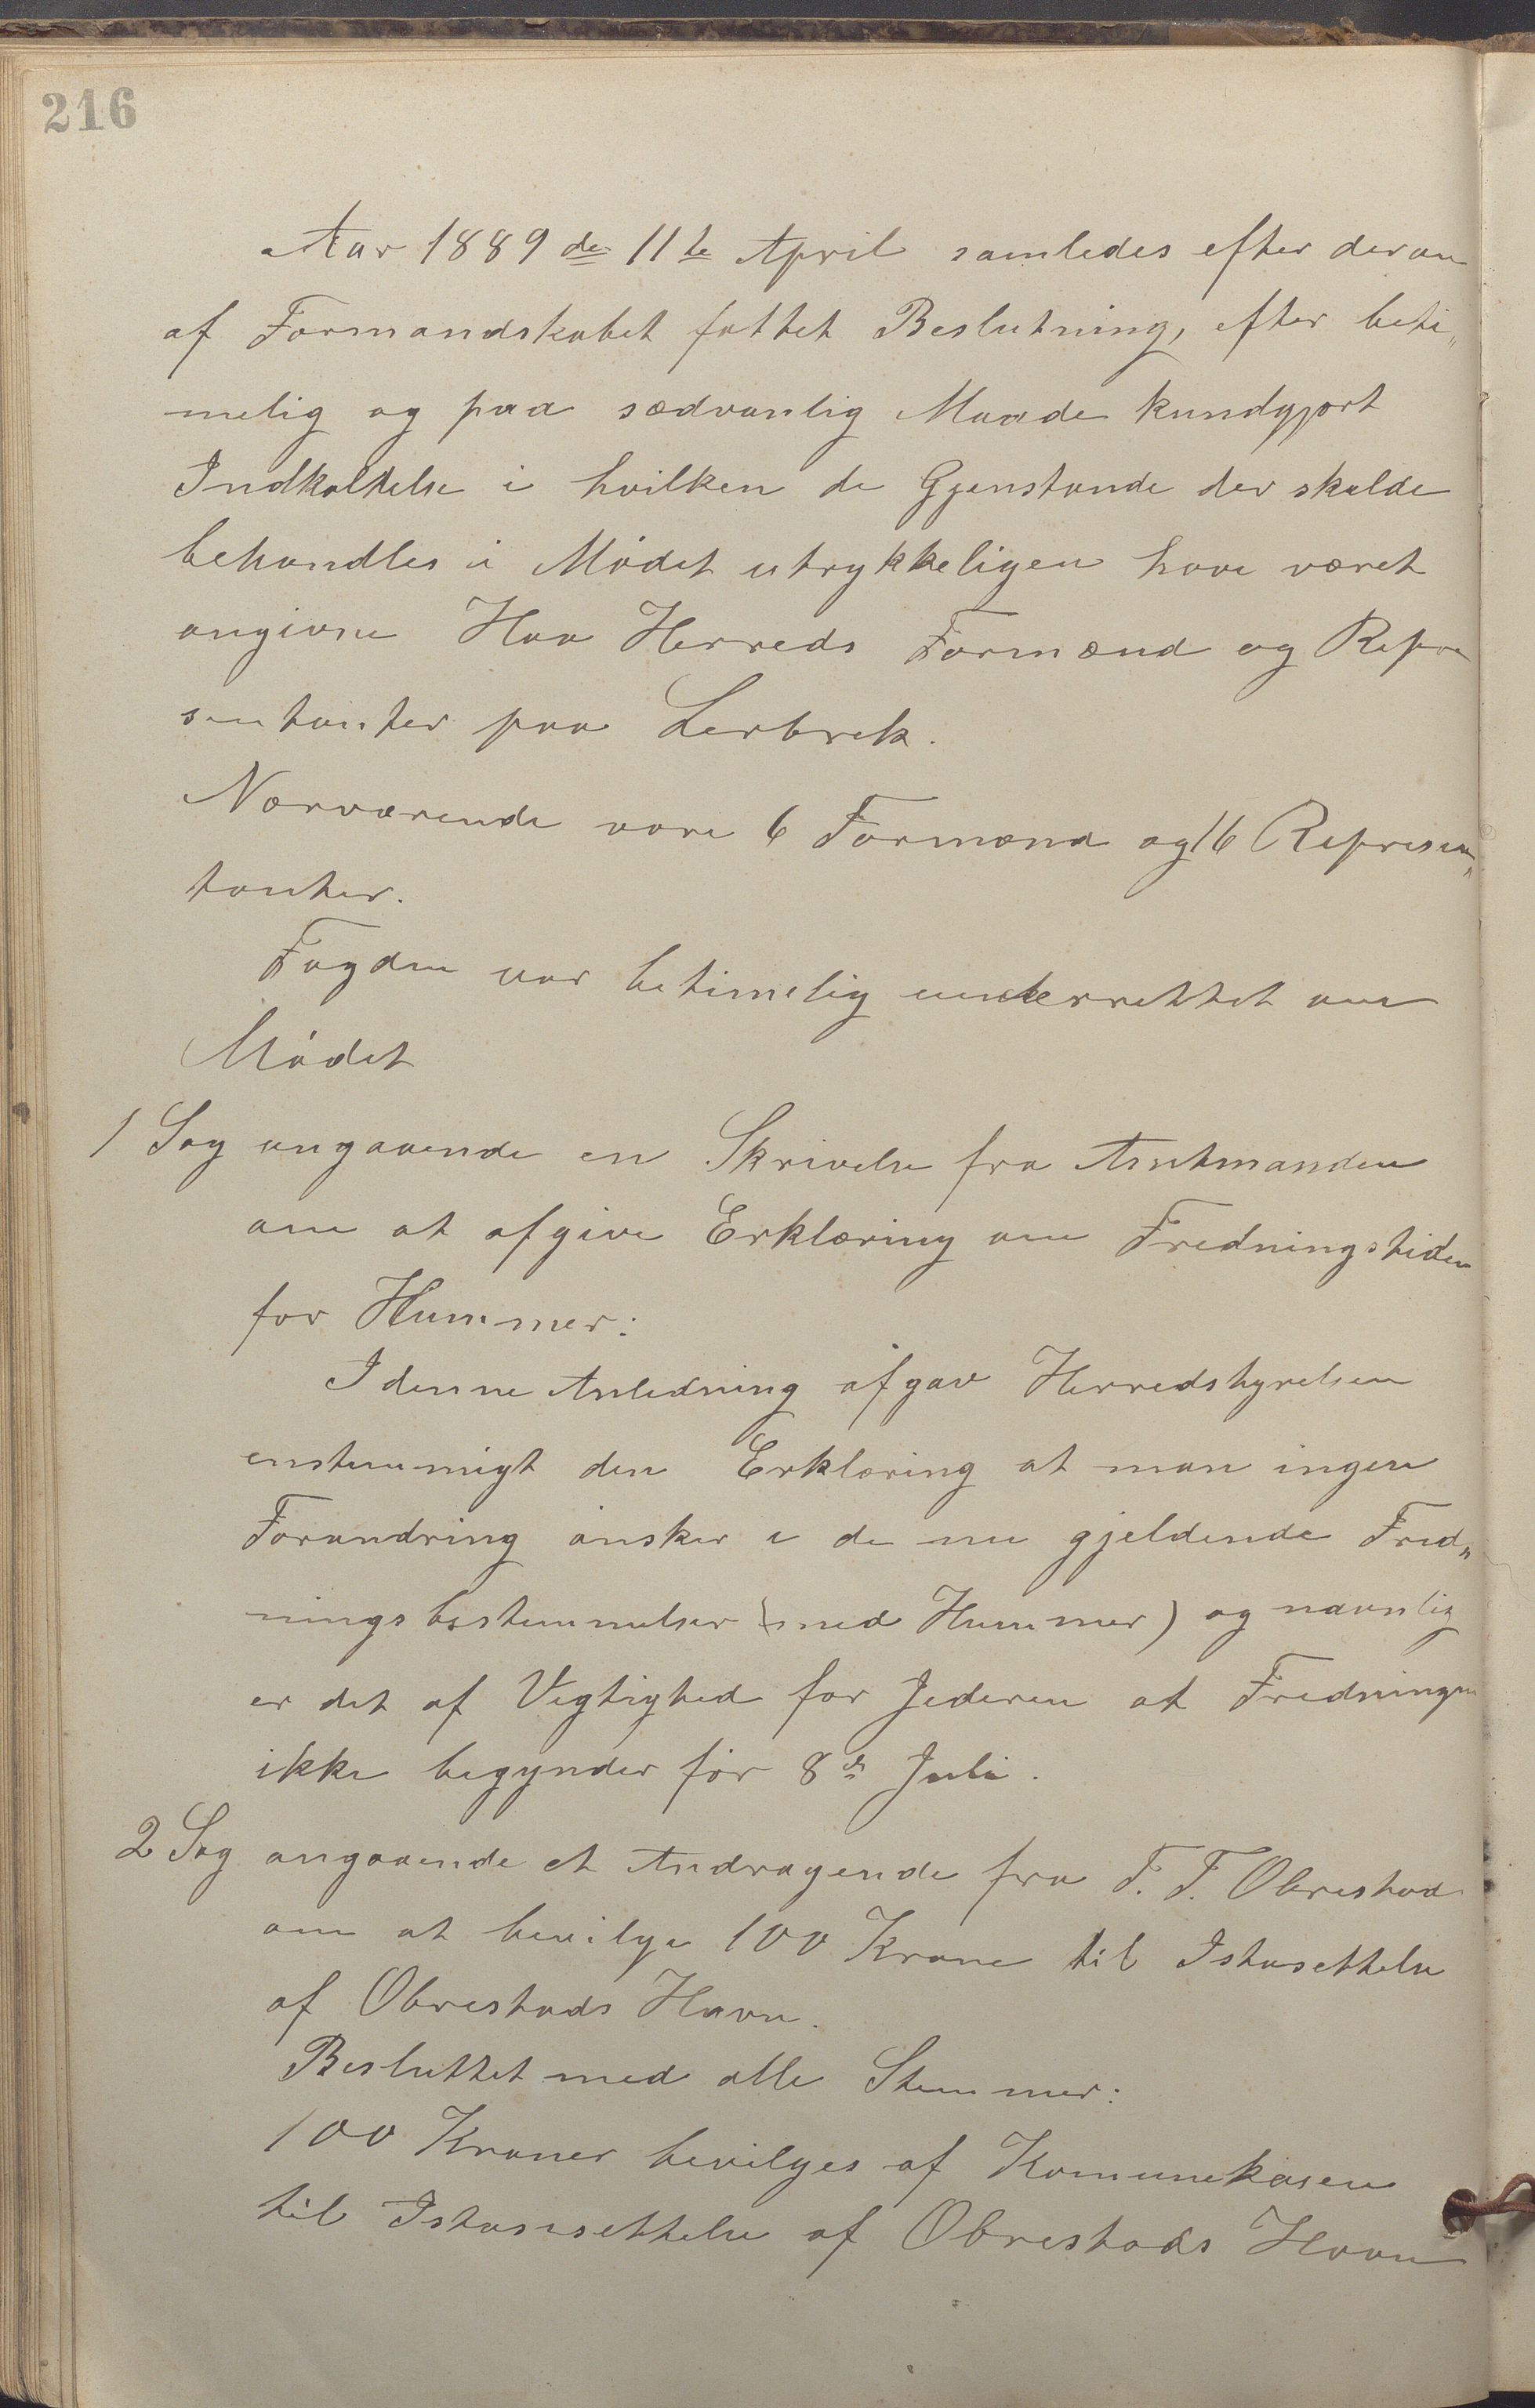 216
Aar 1889 de 11te April samledes efter derom
af Formandskabet fattet Beslutning, efter beti„
melig og paa sædvanlig Maade kundgjort
Indkaldelse i hvilken de Gjenstande der skulde
behandles i Mødet utrykkeligen have været
angivne Haa Herreds Formænd og Repræ
sentanter paa Lerbrek.
Nærværende vare 6 Formænd og 16 Represen„
tanter.
Fogden var betimelig underrettet om
Mødet
1 Sag angaaende en Skrivelse fra Amtmanden
om at afgive Erklæring om Fredningstiden
for Hummer:
I denne Anledning afgav Herredstyrelsen
enstemmigt den Erklæring at man ingen
Forandring ønsker i de nu gjeldende Fred„
ningsbestemmelser (med Hummer) og navnlig
er det af Vigtighed for Jederen at Fredningen
ikke begynder før 8de Juli.
2 Sag angaaende et Andragende fra F. F. Obrestad
om at bevilge 100 Krone til Istasettelse
af Obrestads Havn.
Besluttet med alle Stemmer:
100 Kroner bevilges af Komunekasen
til Istansettelse af Obrestads Havn